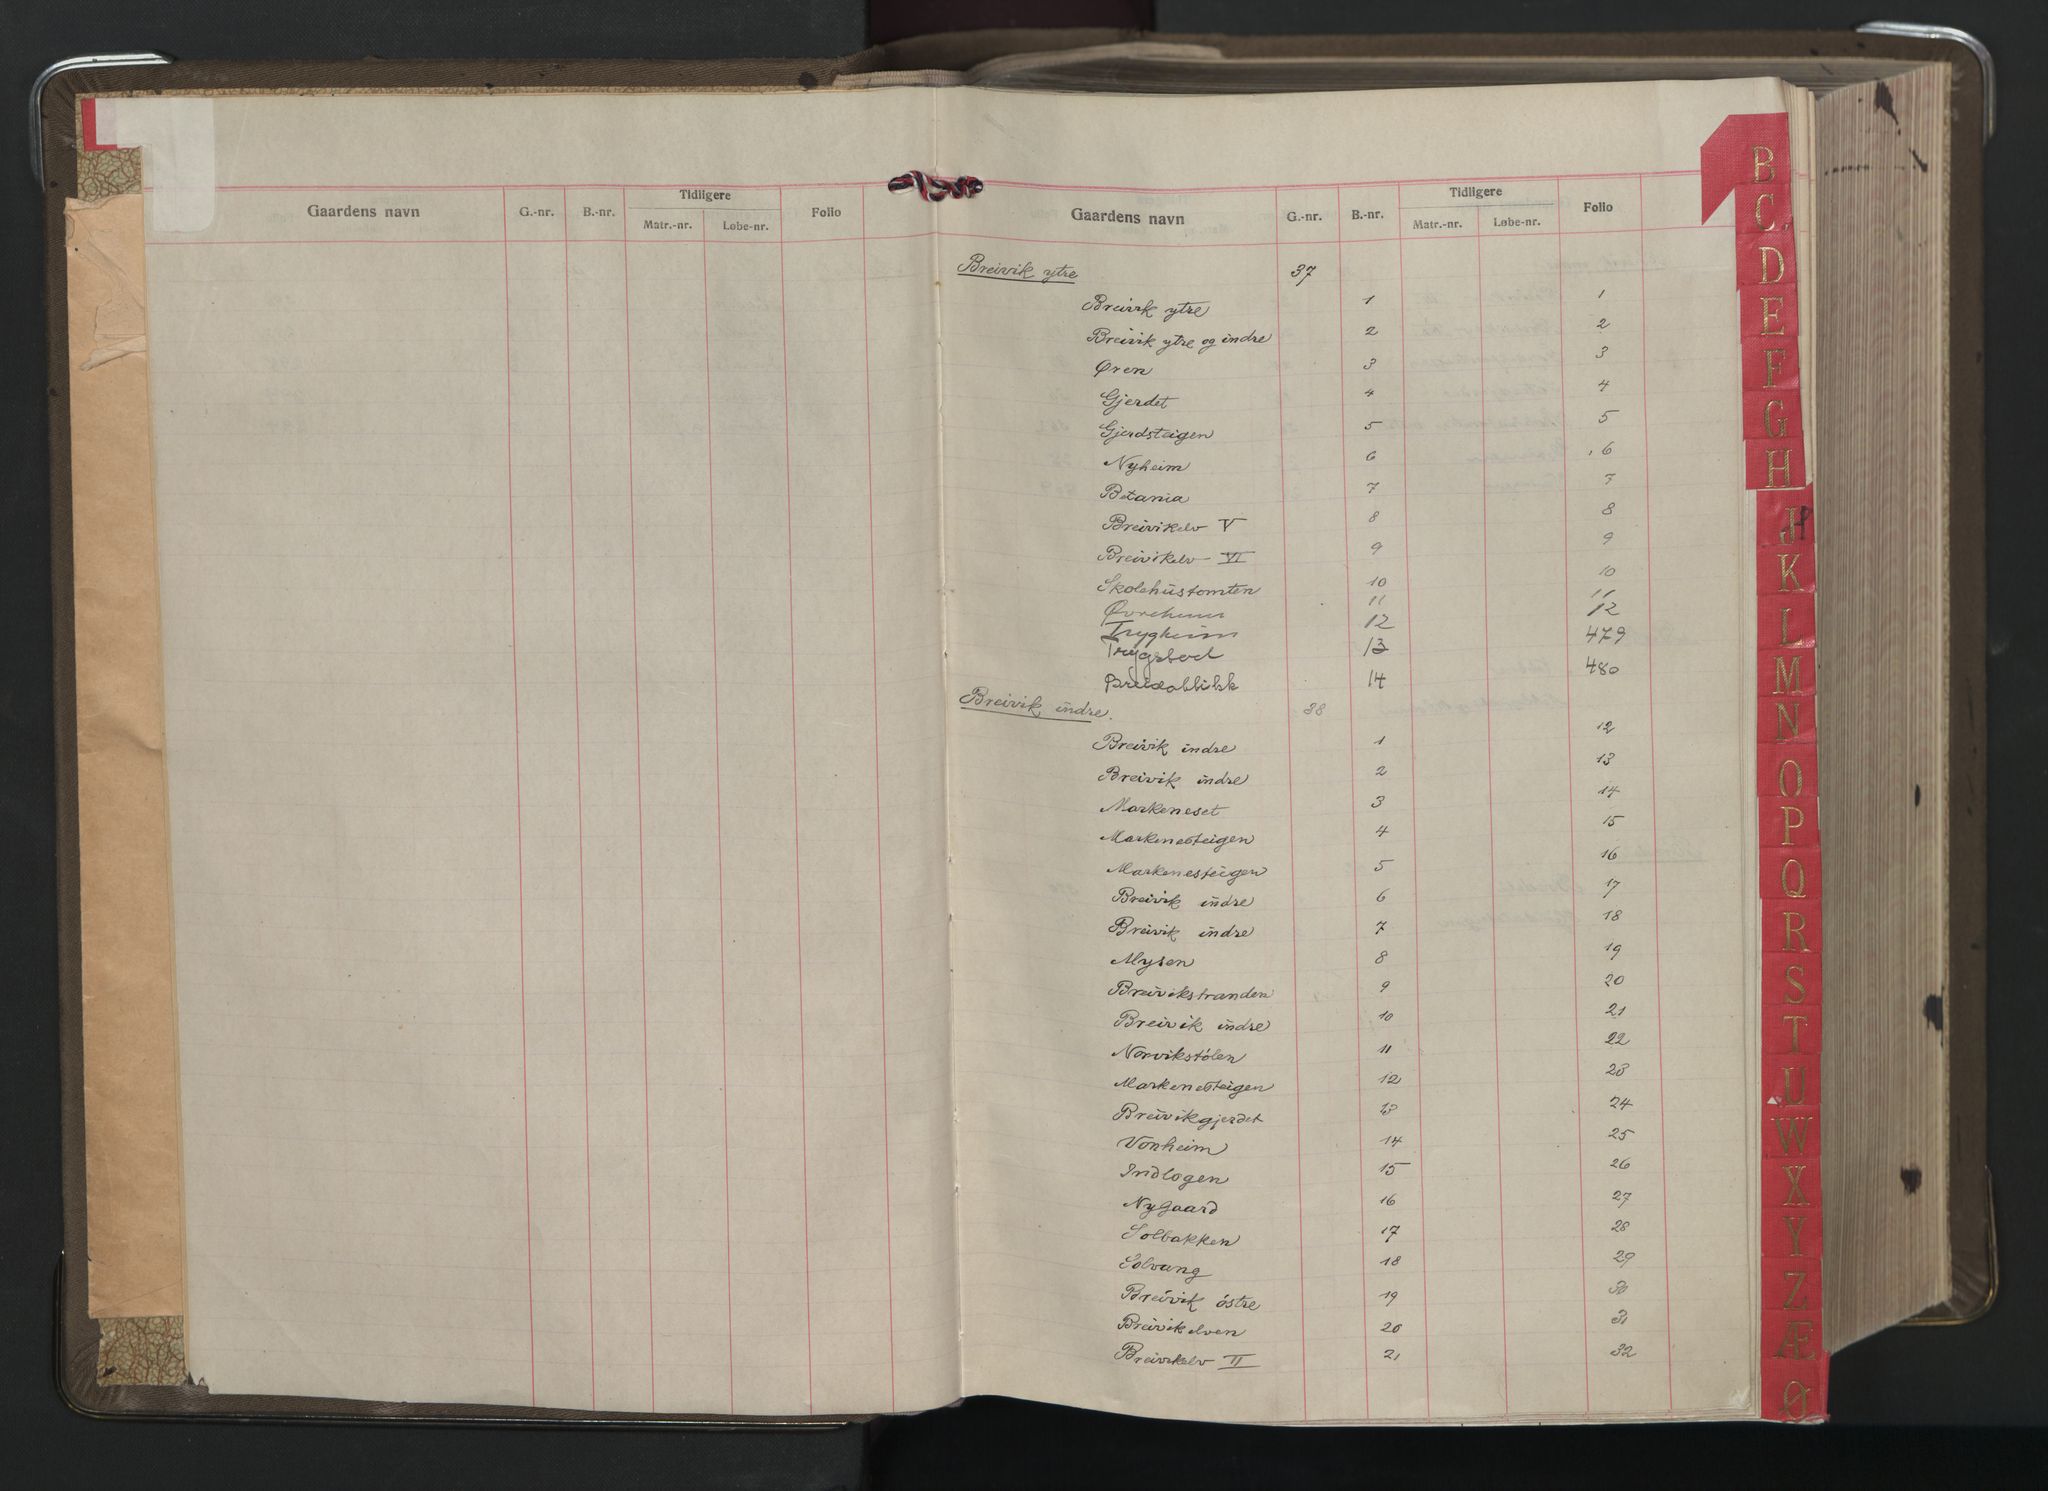 Gaardens navn G.-nr. B.-nr. Tidligere Matr.-nr. Løbe-nr. Folio
Gaardens navn G.-nr. B.-nr. Tidligere Matr.-nr. Løbe-nr. Folio
Breivik ytre 37
Breivik ytre 1 1
Breivik ytre og indre 2 2
Øren 3 3
Gjerdet 4 4
Gjerdsteigen 5 5
Nyheim 6 6
Betania 7 7
Breivikelv V 8 8
Breivikelv VI 9 9
Skolehustomten 10 10
11 11
Trygheim 12 12
Trygstad 13 479
Breidablikk 14 480
Breivik indre. 38
Breivik indre 1 12
Breivik indre 2 13
Markeneset 3 14
Markenesteigen 4 15
Markenesteigen 5 16
Breivik indre 6 17
Breivik indre 7 18
Mysen 8 19
Breivikstranden 9 20
Breivik indre 10 21
Norvikstølen 11 22
Markenesteigen 12 23
Breivikgjerdet 13 24
Vonheim 14 25
Indlogen 15 26
Nygaard 16 27
Solbakken 17 28
Solvang 18 29
Breivik østre 19 30
Breivikelven 20 31
Breivikelv II 21 32
B
C
D
E
F
G
H
J
K
L
M
N
O
P
Q
R
S
T
U
W
X
Y
Z
Æ
Ø